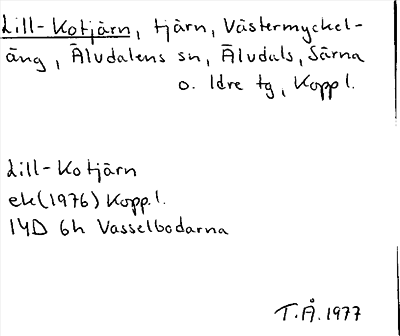 Lill-Kotjärn, tjärn, Västermyckel-
äng, Äludalens sn, Äludals, Särna
o. Idre tg, Koppl.
Lill-Kotjärn
ek(1976) Koppl.
14D 6h Vasselbodarna
T.Å. 1977